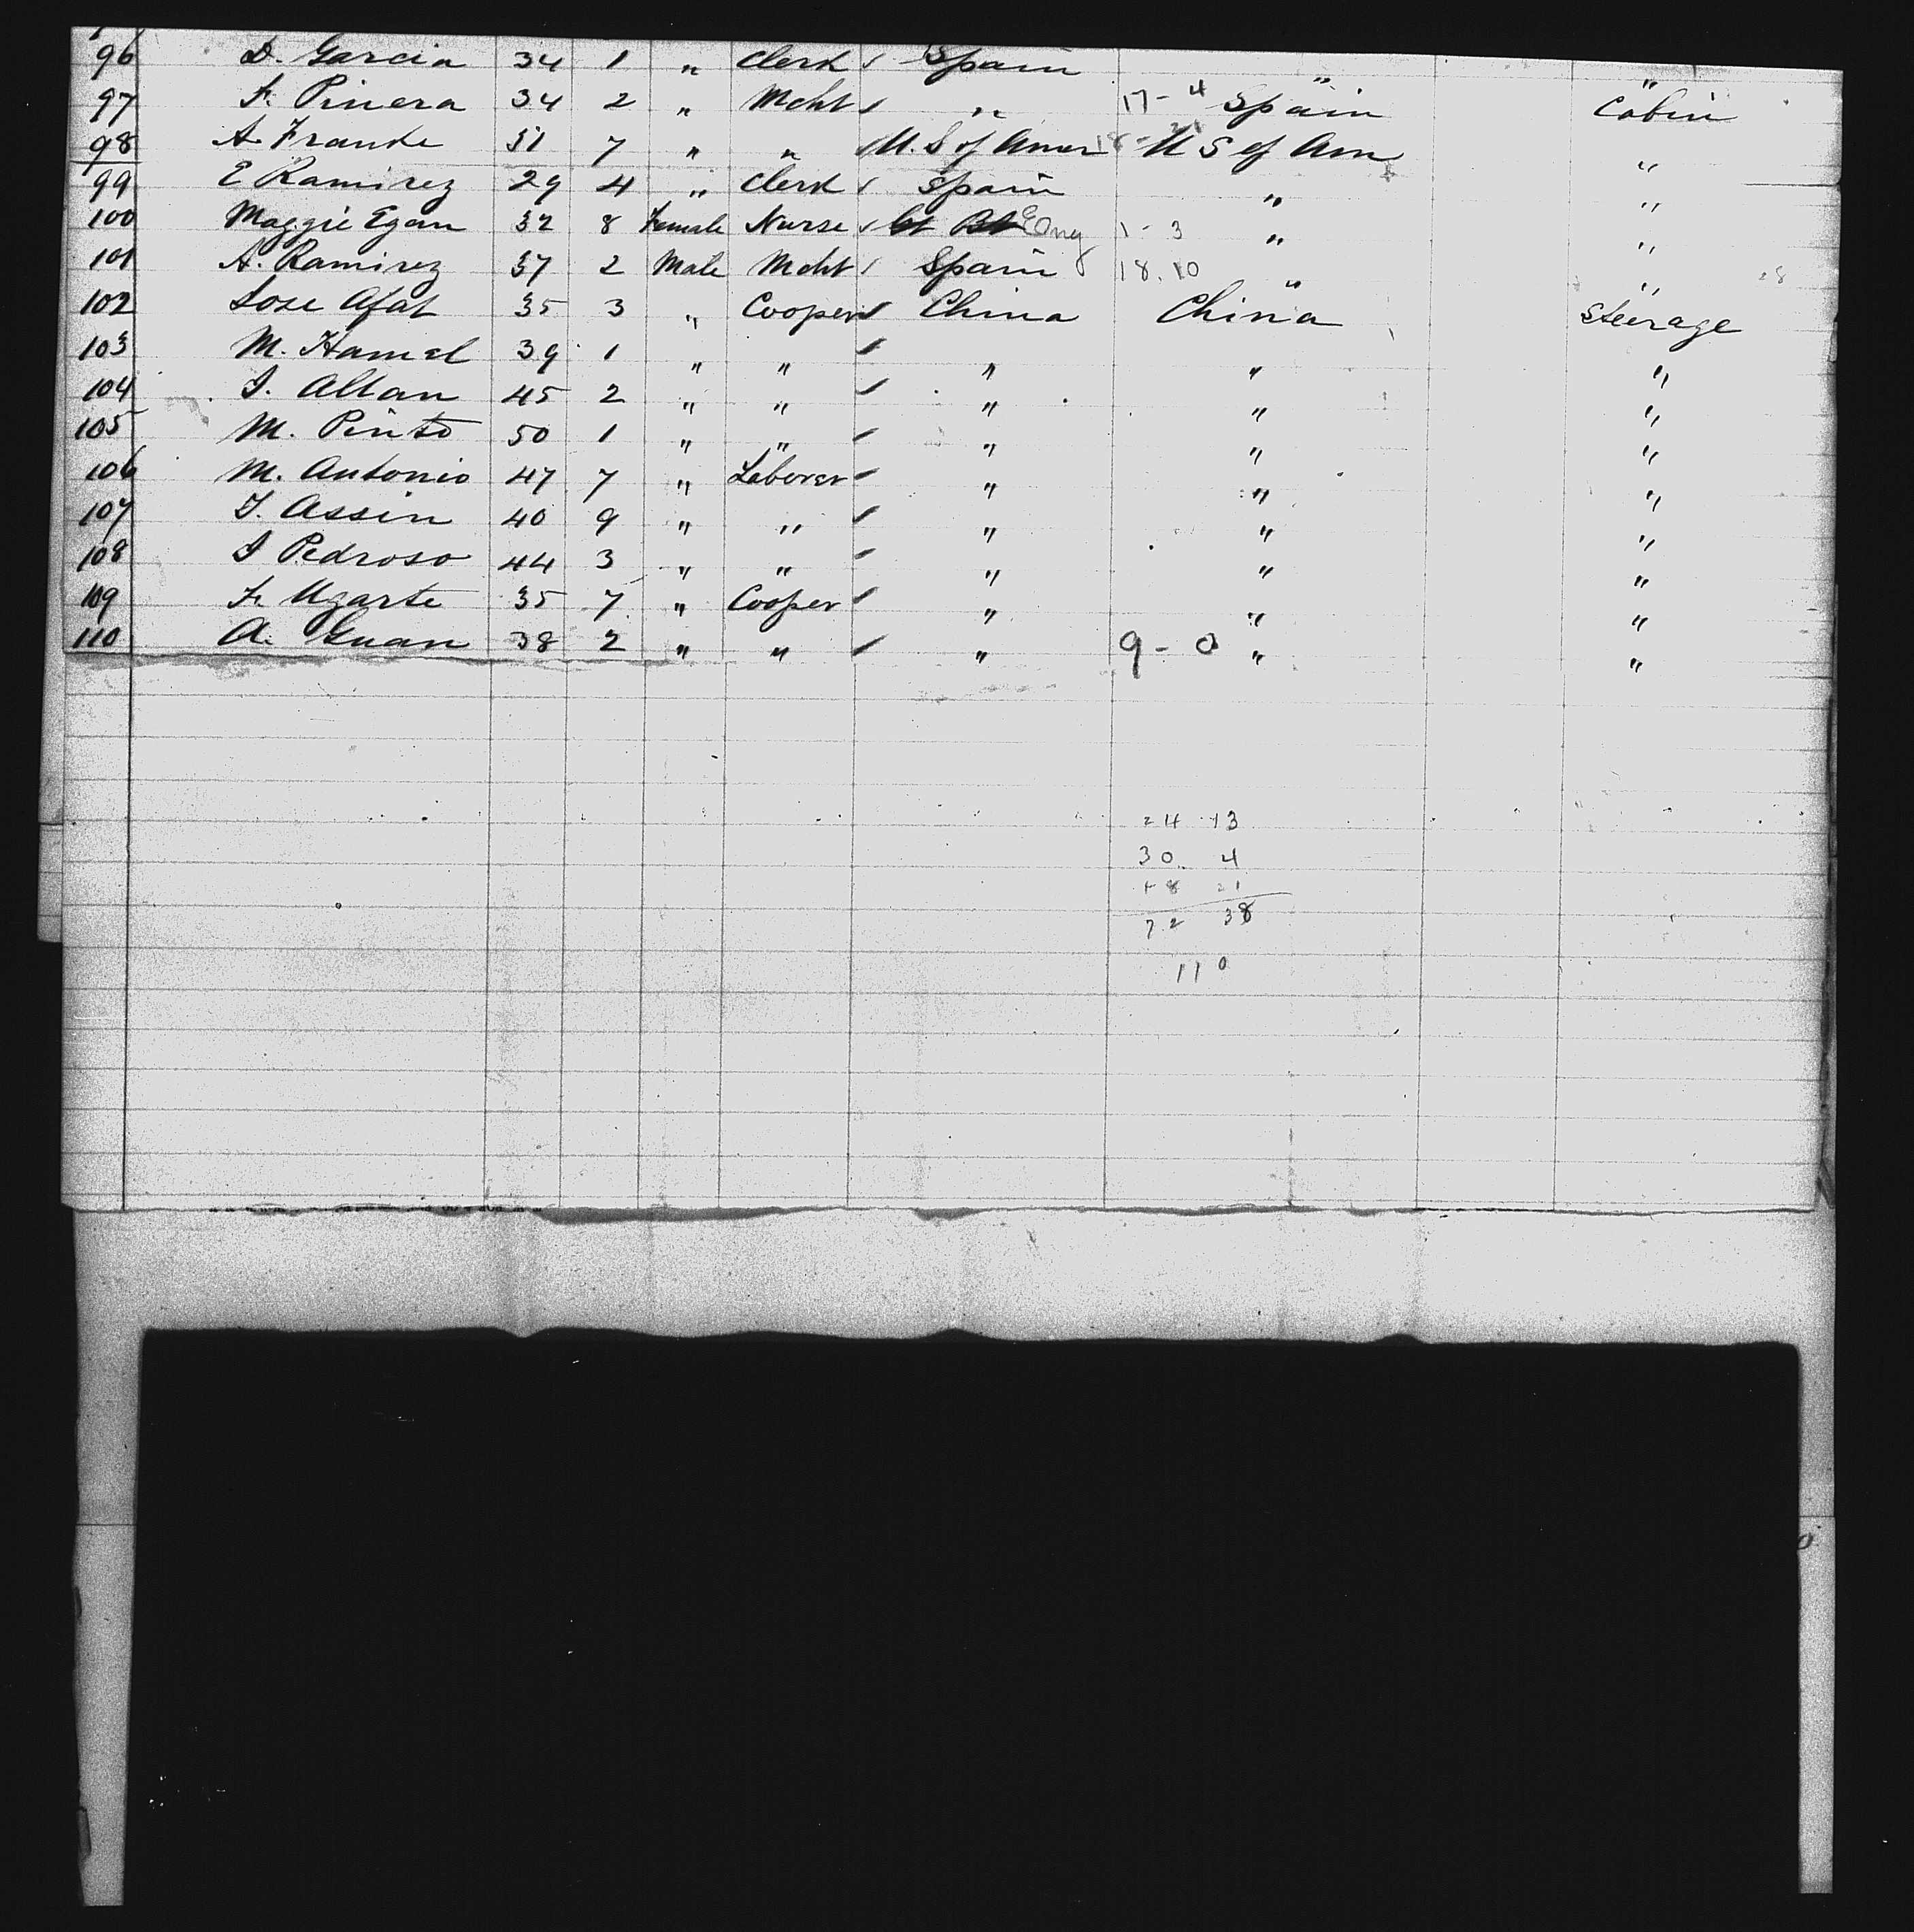 96 D. Garcia 34 1 " Clerk Spain " "
97 F. Pinera 34 2 " Mcht " 17-4 Spain Cabin
98 A. Franke 31 7 " " U.S of Amer U S of Am "
99 E Ramirez 29 4 " Clerk Spain " "
100 Maggie Egan 32 8 Female Nurse Gt Bt Eng 1-3 " "
101 A. Ramirez 37 2 Male Mcht Spain 18.10 " " 28
102 Jose Afat 35 3 " Cooper China China Steerage
103 M. Hamel 39 1 " " " " "
104 J. Allan 45 2 " " " " "
105 M. Pinto 50 1 " " " " "
106 M. Antonio 47 7 " Laborer " " "
107 J. Assin 40 9 " " " " "
108 J Pedroso 44 3 " " " " "
109 F. Ugarte 35 7 " Cooper " " "
110 A. Guan 38 2 " " " 9-0 " "
24 13
30 4
18 21
72 38
110